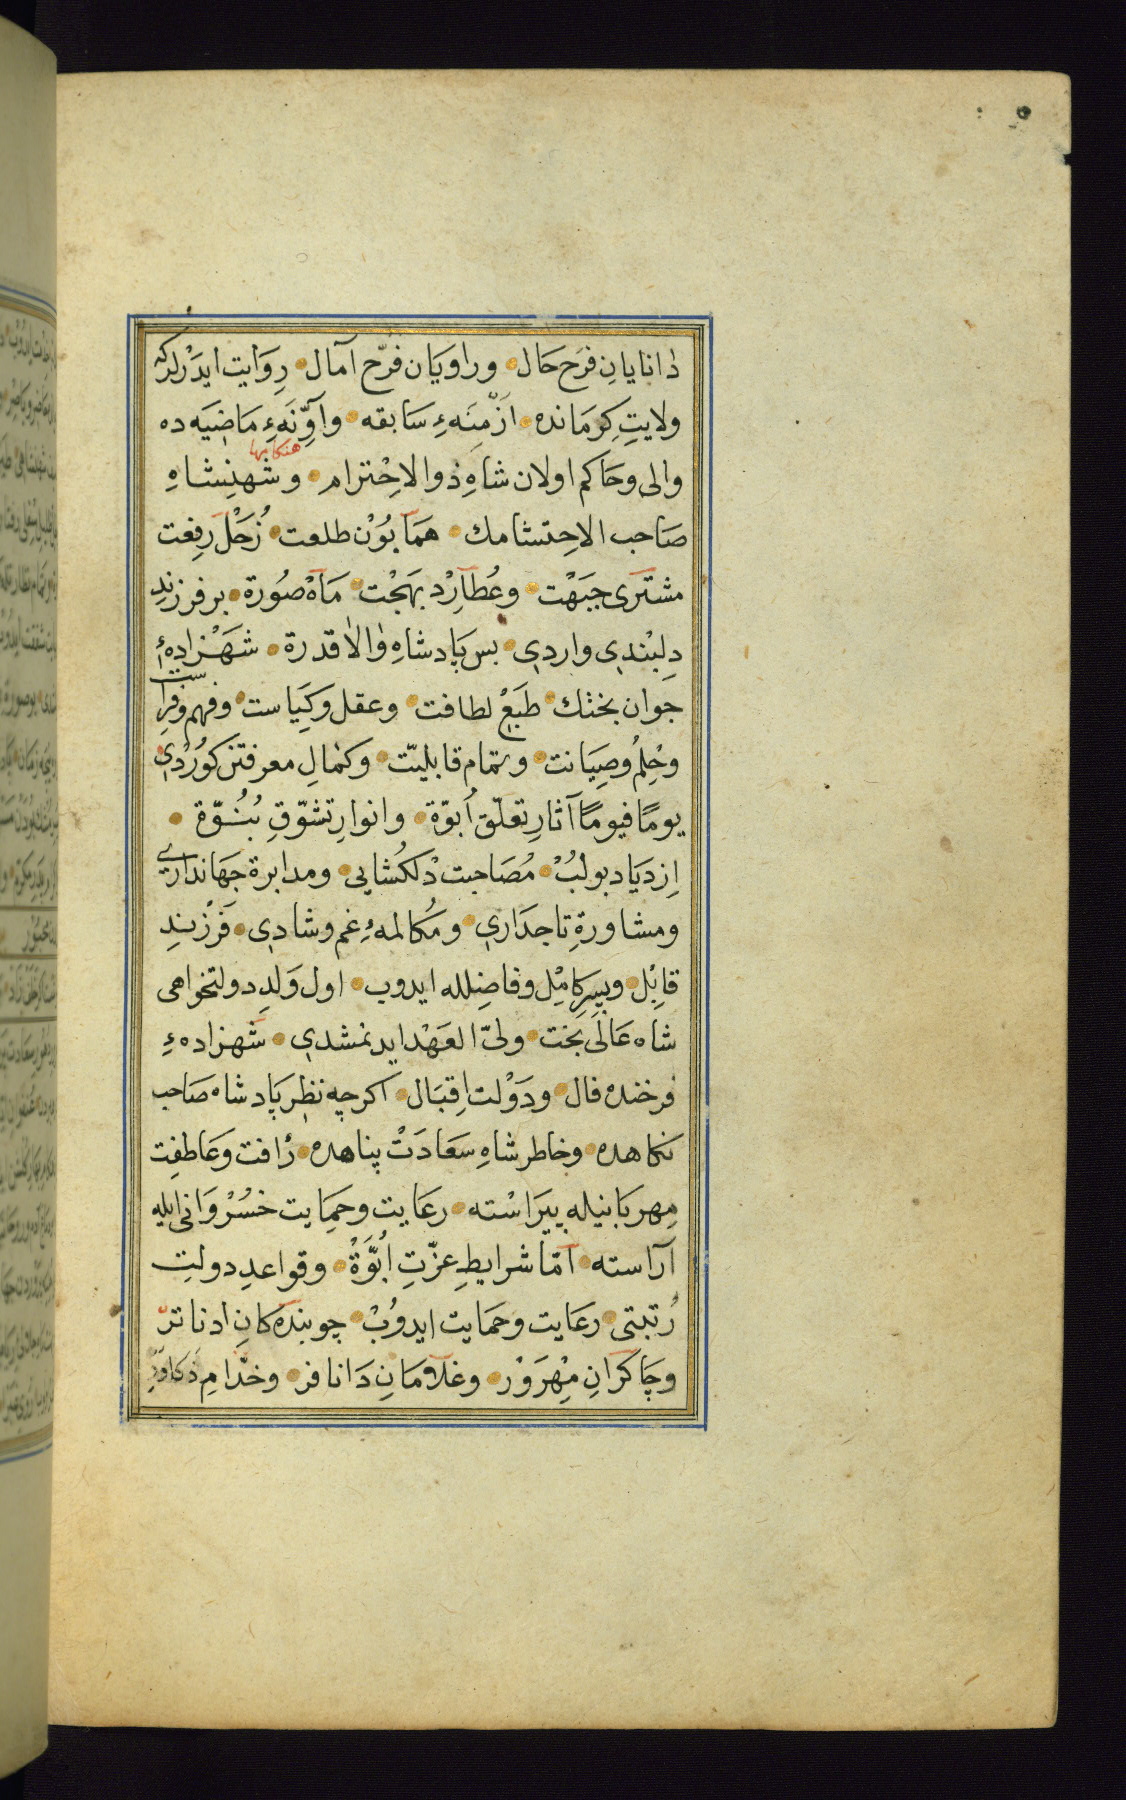 دانایانِ فرَح حَال • وراویَان فرّح آمال • رِوَایت ایدَرْلرکه
ولایتِ کِرمَانده • اَزْمِنَهءِ سَابقه • وآوِّنَهءِ مَاضیَه ده
هنکامها
والی وحَاکم اولان شاهِ ذوالاحِتْرام • وشَهنِشاهِ
صَاحب الاحِتشامك • همَایُوْن طلعت • زُحَلْ رِفِعت
مشتَری جبَهْت • وعُطارِدْ بهَجْت • مَاهْ صُورة • برفرزندِ
دِلبْندی واردی • بس پادشاهِ والا قدرة • شهَزادهءٔ
جوان بختك • طبَعْ لطافت • وعقل وکِیَاست • وفهم وفِراست
وحْلِمُ وصِیَانت • وتمام قابلیّت • وکمَالِ معرفتن کورُدی
یومًا فیومًا آثارِ تعلّق اُبوّة • وانوارِ تشوّقِ بُنُوّة •
اِزدیَاد بولُبْ • مُصَاحبت دْلکُشایی • ومدابرة جهَانداری
ومشاورةِ تاجدَاری • ومُکالمهءِ غم وشادی • فَرْزندِ
قابِلْ • وپسرِ کامِلْ وفاضِلله ایدوب • اول وَلدِ دولتخواهی
شاه عَالی بَخت • ولیّ العَهْد ایدنمشدی • شهزادهءِ
فرخنده فال • ودَوْلت اِقبَال • اکرچه نظرِ پادشاه صَاحب
نکاهده • وخاطر شاهِ سعَادَتْ پناهده • رأفت وعَاطفِت
مِهربَانیله پیرَاسْته • رعَایت وحِمَایت خسُرْوَانی ایله
آراسته • امّا شرایطِ عزّتِ اُبُوَّةْ • وقواعدِ دولتِ
رُتبتی • رعَایت وحمَایت ایدوُبْ • چو بنده کانِ ادناتر
وچَاکرانِ مِهْروَرْ • وغلامَانِ دَانافر • وخدّامِ ذکاوَر